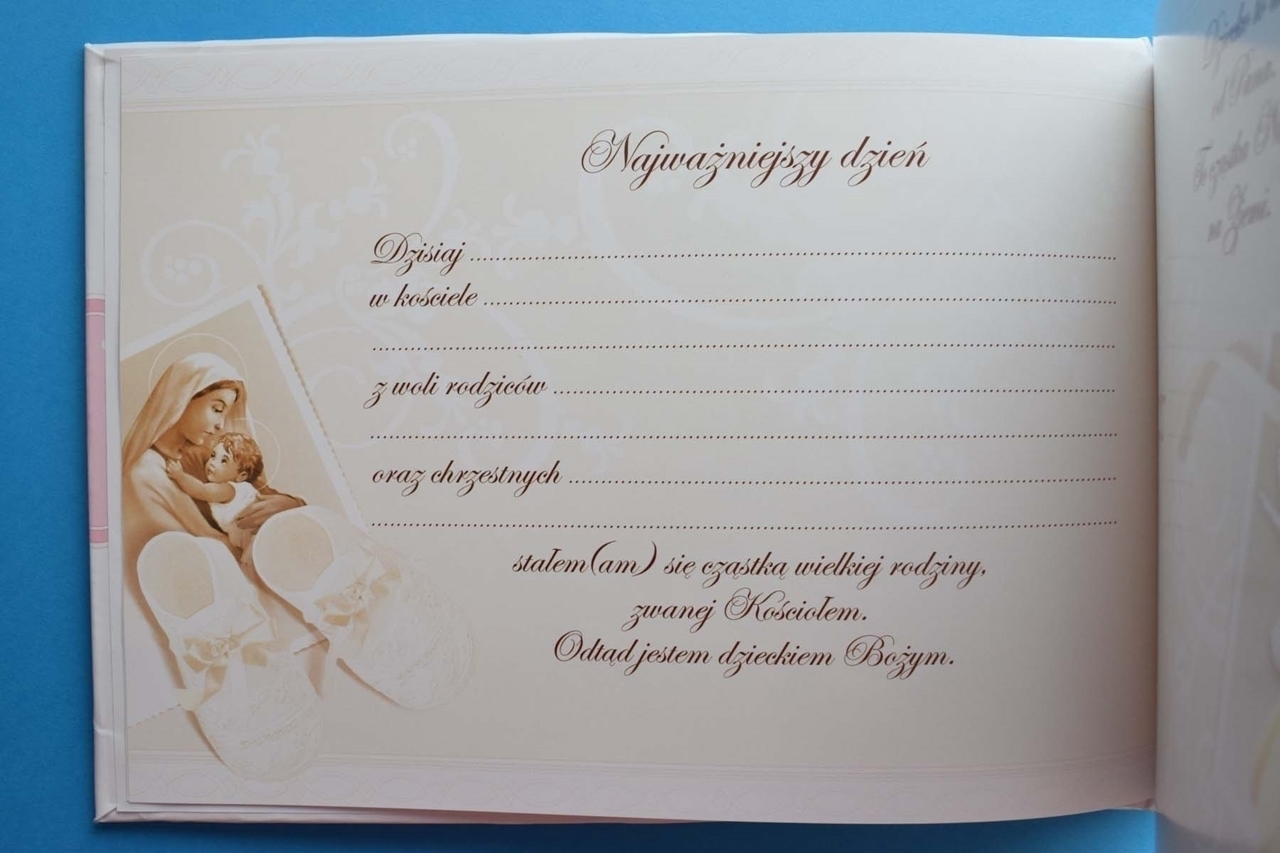 Najważniejszy dzień
Dzisiaj ..........
w kościele ..........
..........
z woli rodziców ..........
..........
oraz chrzestnych ..........
..........
stałem(am) się cząstką wielkiej rodziny,
zwanej Kościołem.
Odtąd jestem dzieckiem Bożym.
na Ziemi.